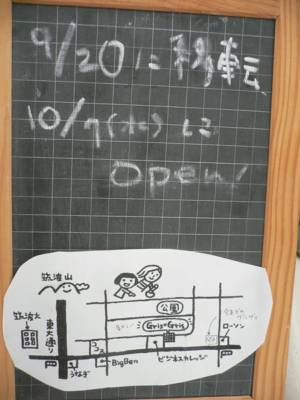 9/20に移転
10/7(水)に
Open!
筑波山
公園
Gris*Gris
筑波大
東大通り
ローソン
ココス
うなぎ
BigBen
ビジネスカレッジ